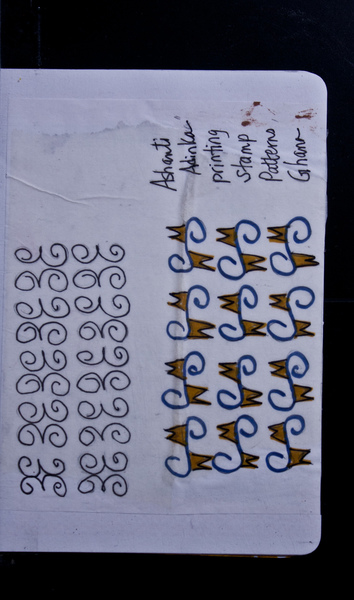 Ashanti
Adinkra
printing
stamp
Patterns
Ghana